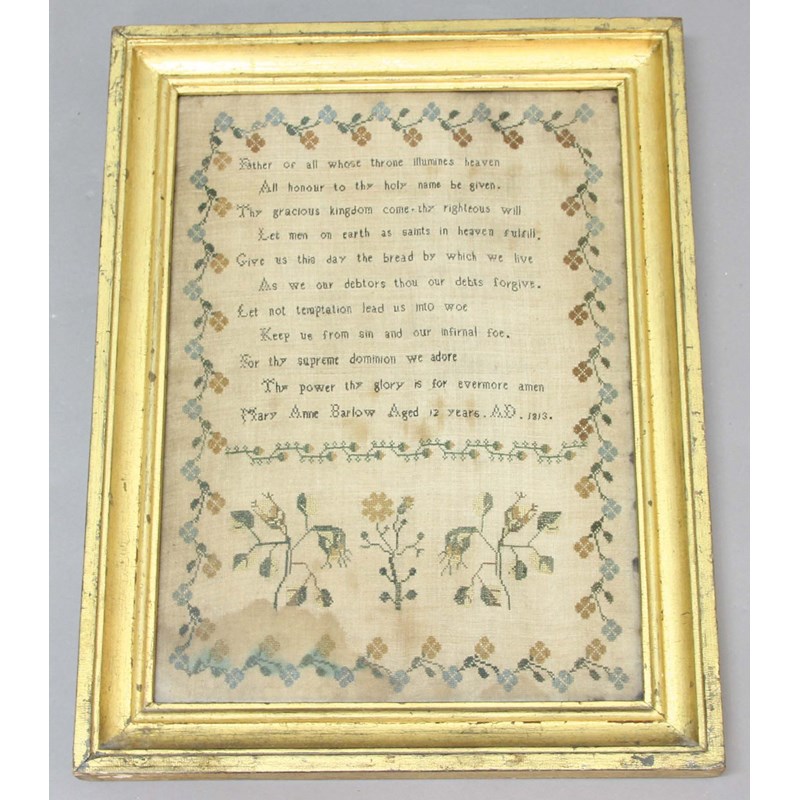 Father of all whose throne illumines heaven
All honour to thy holy name be given.
Thy gracious kingdom come. thy righteous will
Let men on earth as saints in heaven fulfill.
Give us this day the bread by which we live
As we our debtors thou our debts forgive.
Let not temptation lead us into woe
Keep us from sin and our infirnal foe.
For thy supreme dominion we adore
Thy power thy glory is for evermore amen
Mary Anne Barlow Aged 12 years. AD. 1813.